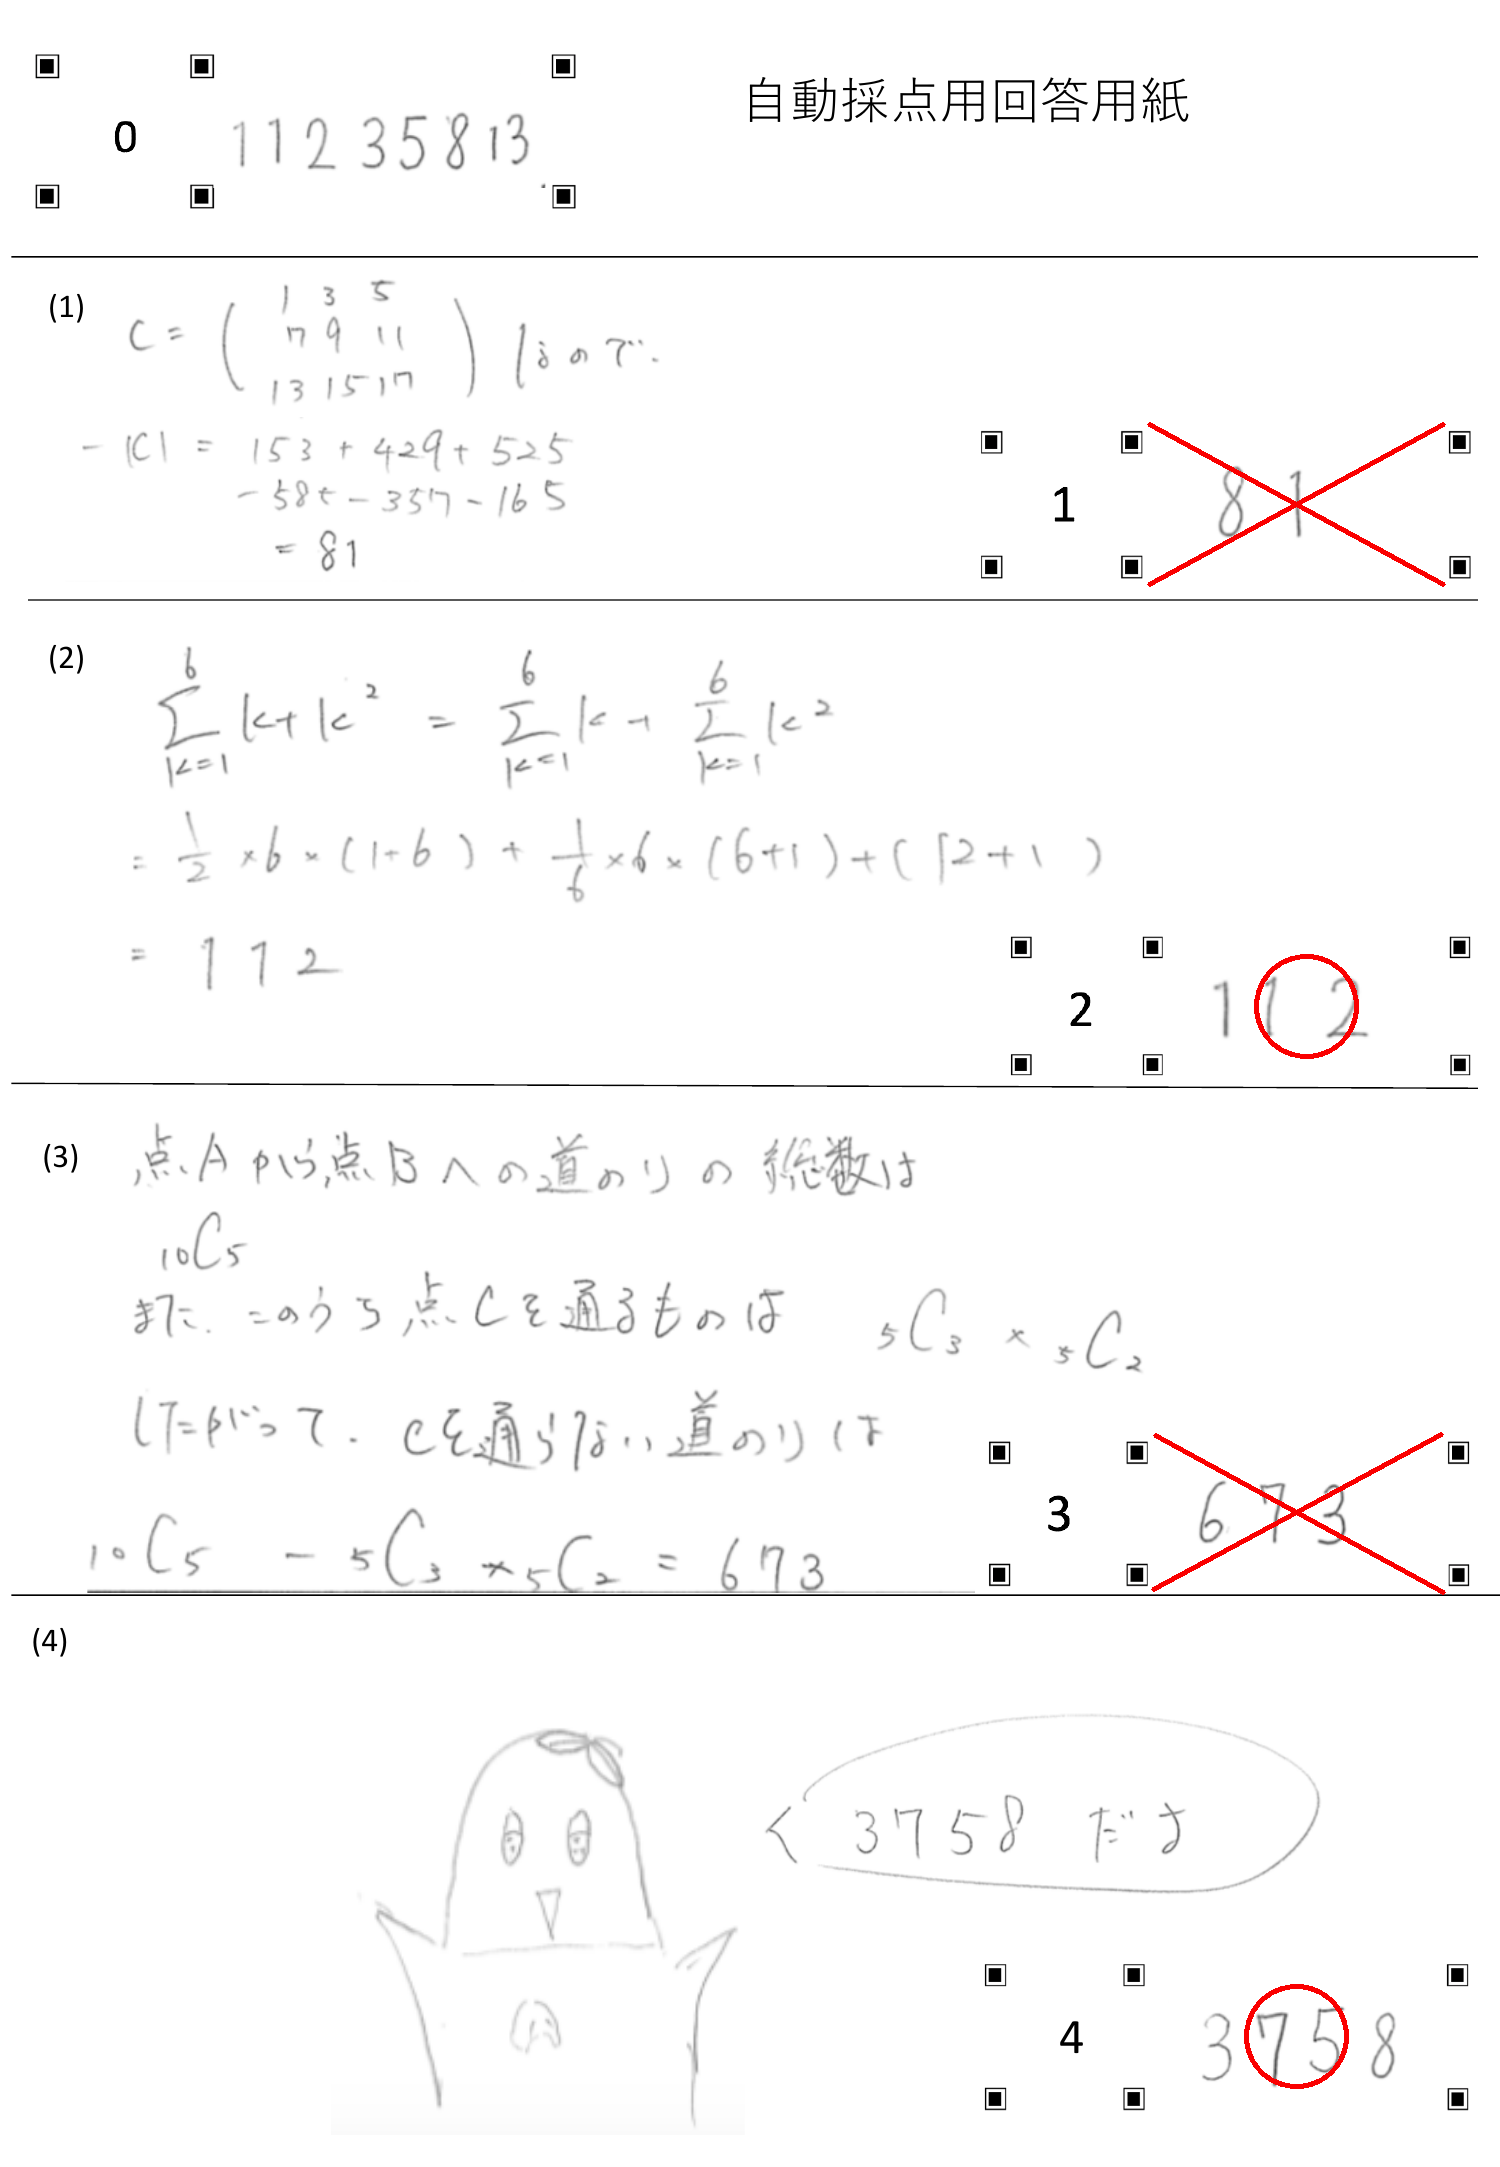 自動採点用回答用紙
0 11235813
(1)
C = ( 1 3 5
7 9 11
13 15 17 ) なので.
- |C| = 153 + 429 + 525
- 585 - 357 - 165
= 81
1 81
(2)
6 6 6
Σ k+k² = Σ k + Σ k²
k=1 k=1 k=1
= 1/2 ×6×(1+6) + 1/6 ×6×(6+1)+(12+1)
= 112
2 112
(3) 点Aから点Bへの道のりの総数は
₁₀C₅
また、このうち点Cを通るものは ₅C₃ × ₅C₂
したがって、Cを通らない道のりは
₁₀C₅ - ₅C₃ × ₅C₂ = 673
3 673
(4)
3758 だよ
4 3758